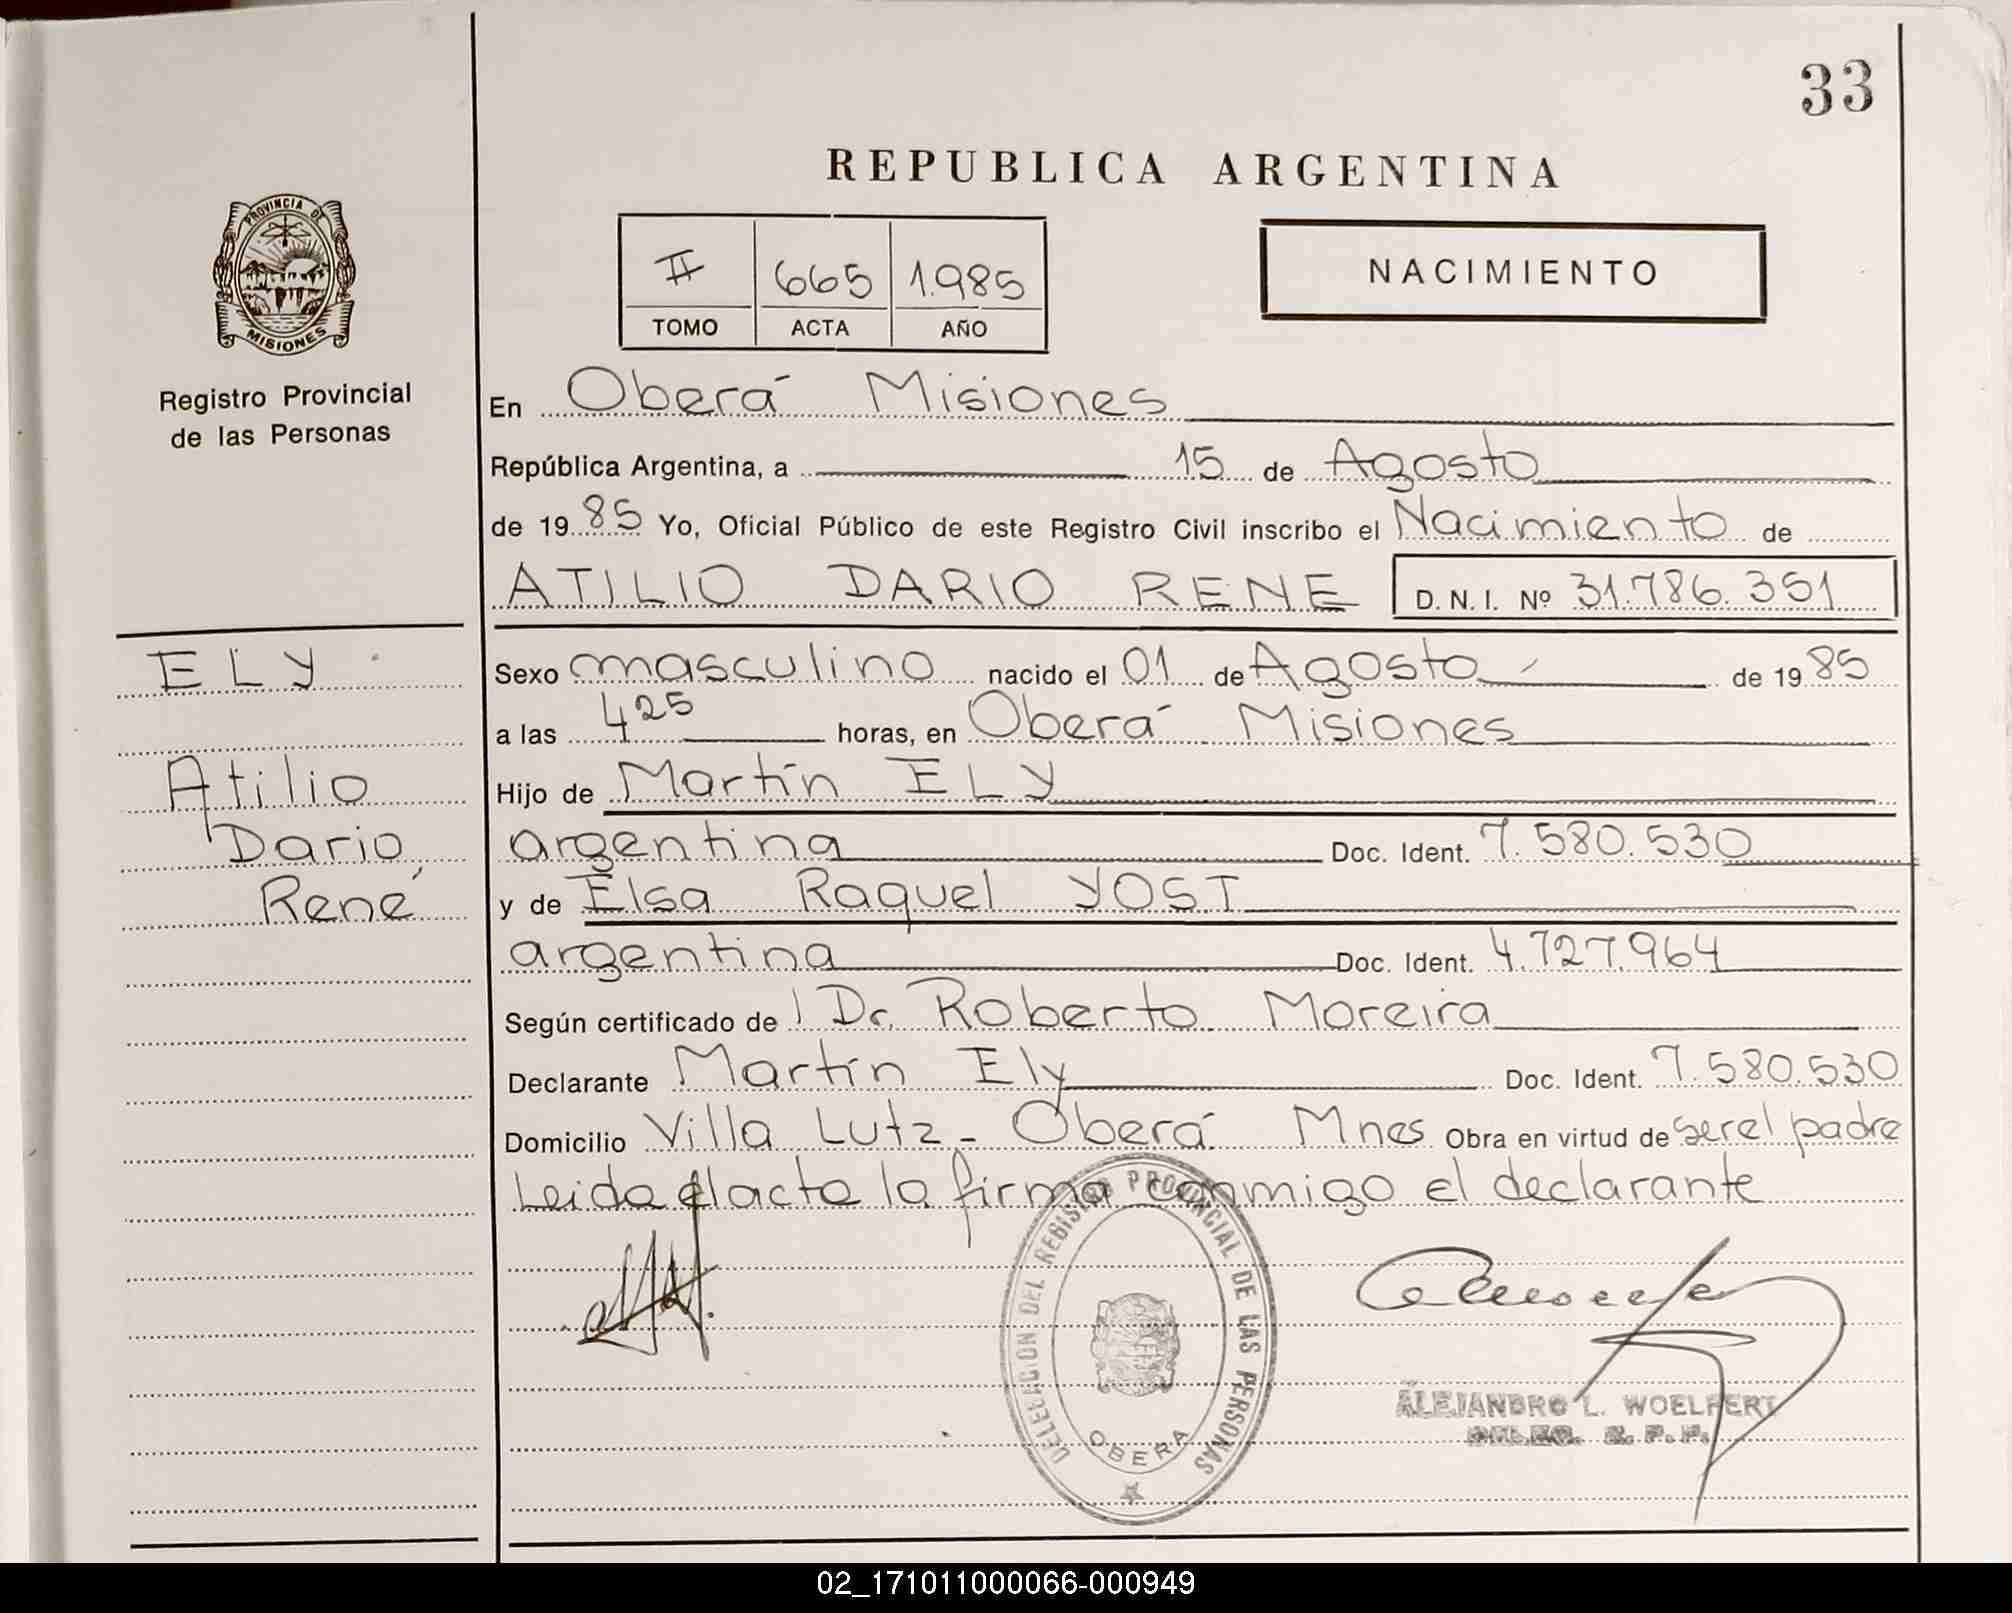 33
REPUBLICA ARGENTINA
PROVINCIA DE
MISIONES
Registro Provincial
de las Personas
II 665 1.985
TOMO ACTA AÑO
NACIMIENTO
En Oberá Misiones
República Argentina, a 15 de Agosto
de 19 85 Yo, Oficial Público de este Registro Civil inscribo el Nacimiento de
ATILIO DARIO RENE D. N. I. Nº 31.786.351
ELY
Atilio
Dario
René
Sexo masculino nacido el 01 de Agosto de 19 85
a las 4 25 horas, en Oberá Misiones
Hijo de Martín ELY
argentina Doc. Ident. 7.580.530
y de Elsa Raquel YOST
argentina Doc. Ident. 4.727.964
Según certificado de Dr. Roberto Moreira
Declarante Martín Ely Doc. Ident. 7.580.530
Domicilio Villa Lutz - Oberá Mnes Obra en virtud de ser el padre
Leida el acta la firma conmigo el declarante
DELEGACION DEL REGISTRO PROVINCIAL DE LAS PERSONAS
OBERA
ALEJANDRO L. WOELFERT
DELEG. R. P. P.
02_171011000066-000949